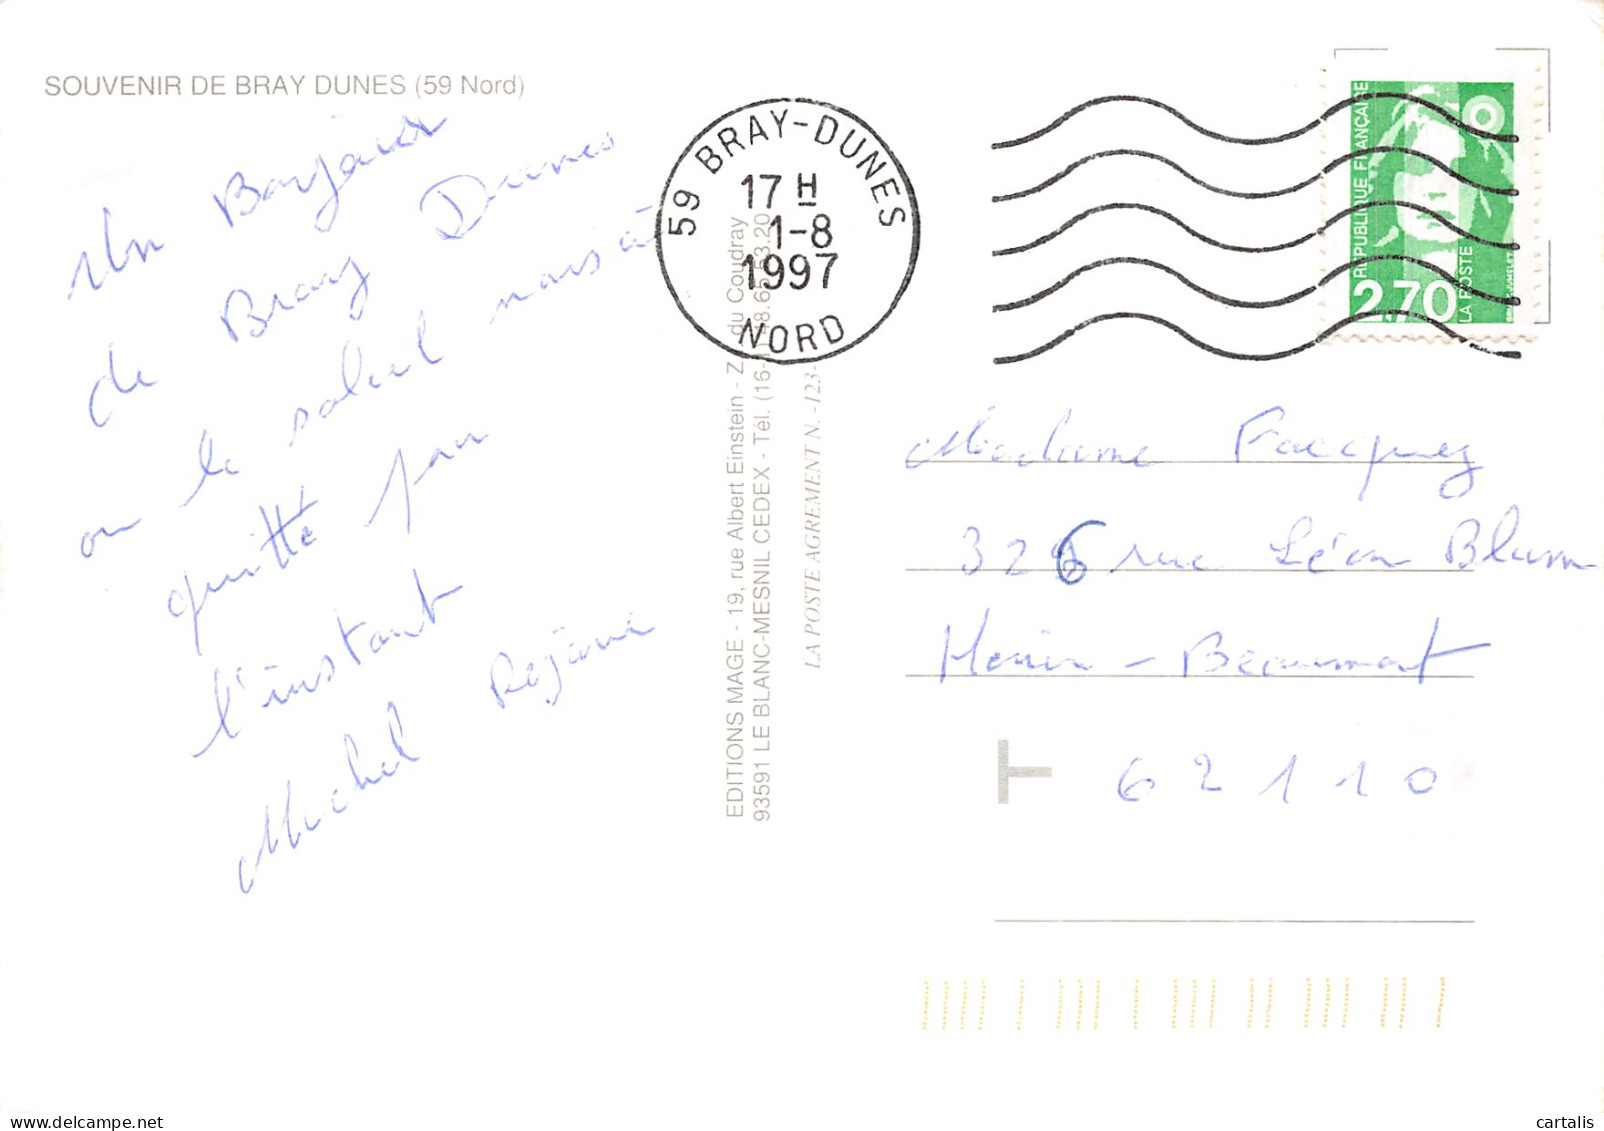 SOUVENIR DE BRAY DUNES (59 Nord)
Un Bonjour
de Bray Dunes
ou le soleil nous à
quitté pour
l'instant
Michel Rejane
59 BRAY-DUNES
17 H
1-8
1997
NORD
EDITIONS MAGE - 19, rue Albert Einstein - Z du Coudray
93591 LE BLANC-MESNIL CEDEX - Tél. (16-
LA POSTE AGREMENT N. -123-
REPUBLIQUE FRANÇAISE
2,70
LA POSTE
Madame Facquez
326 rue Léon Blum
Henin - Beaumont
T
62110
delcampe.net
cartalis